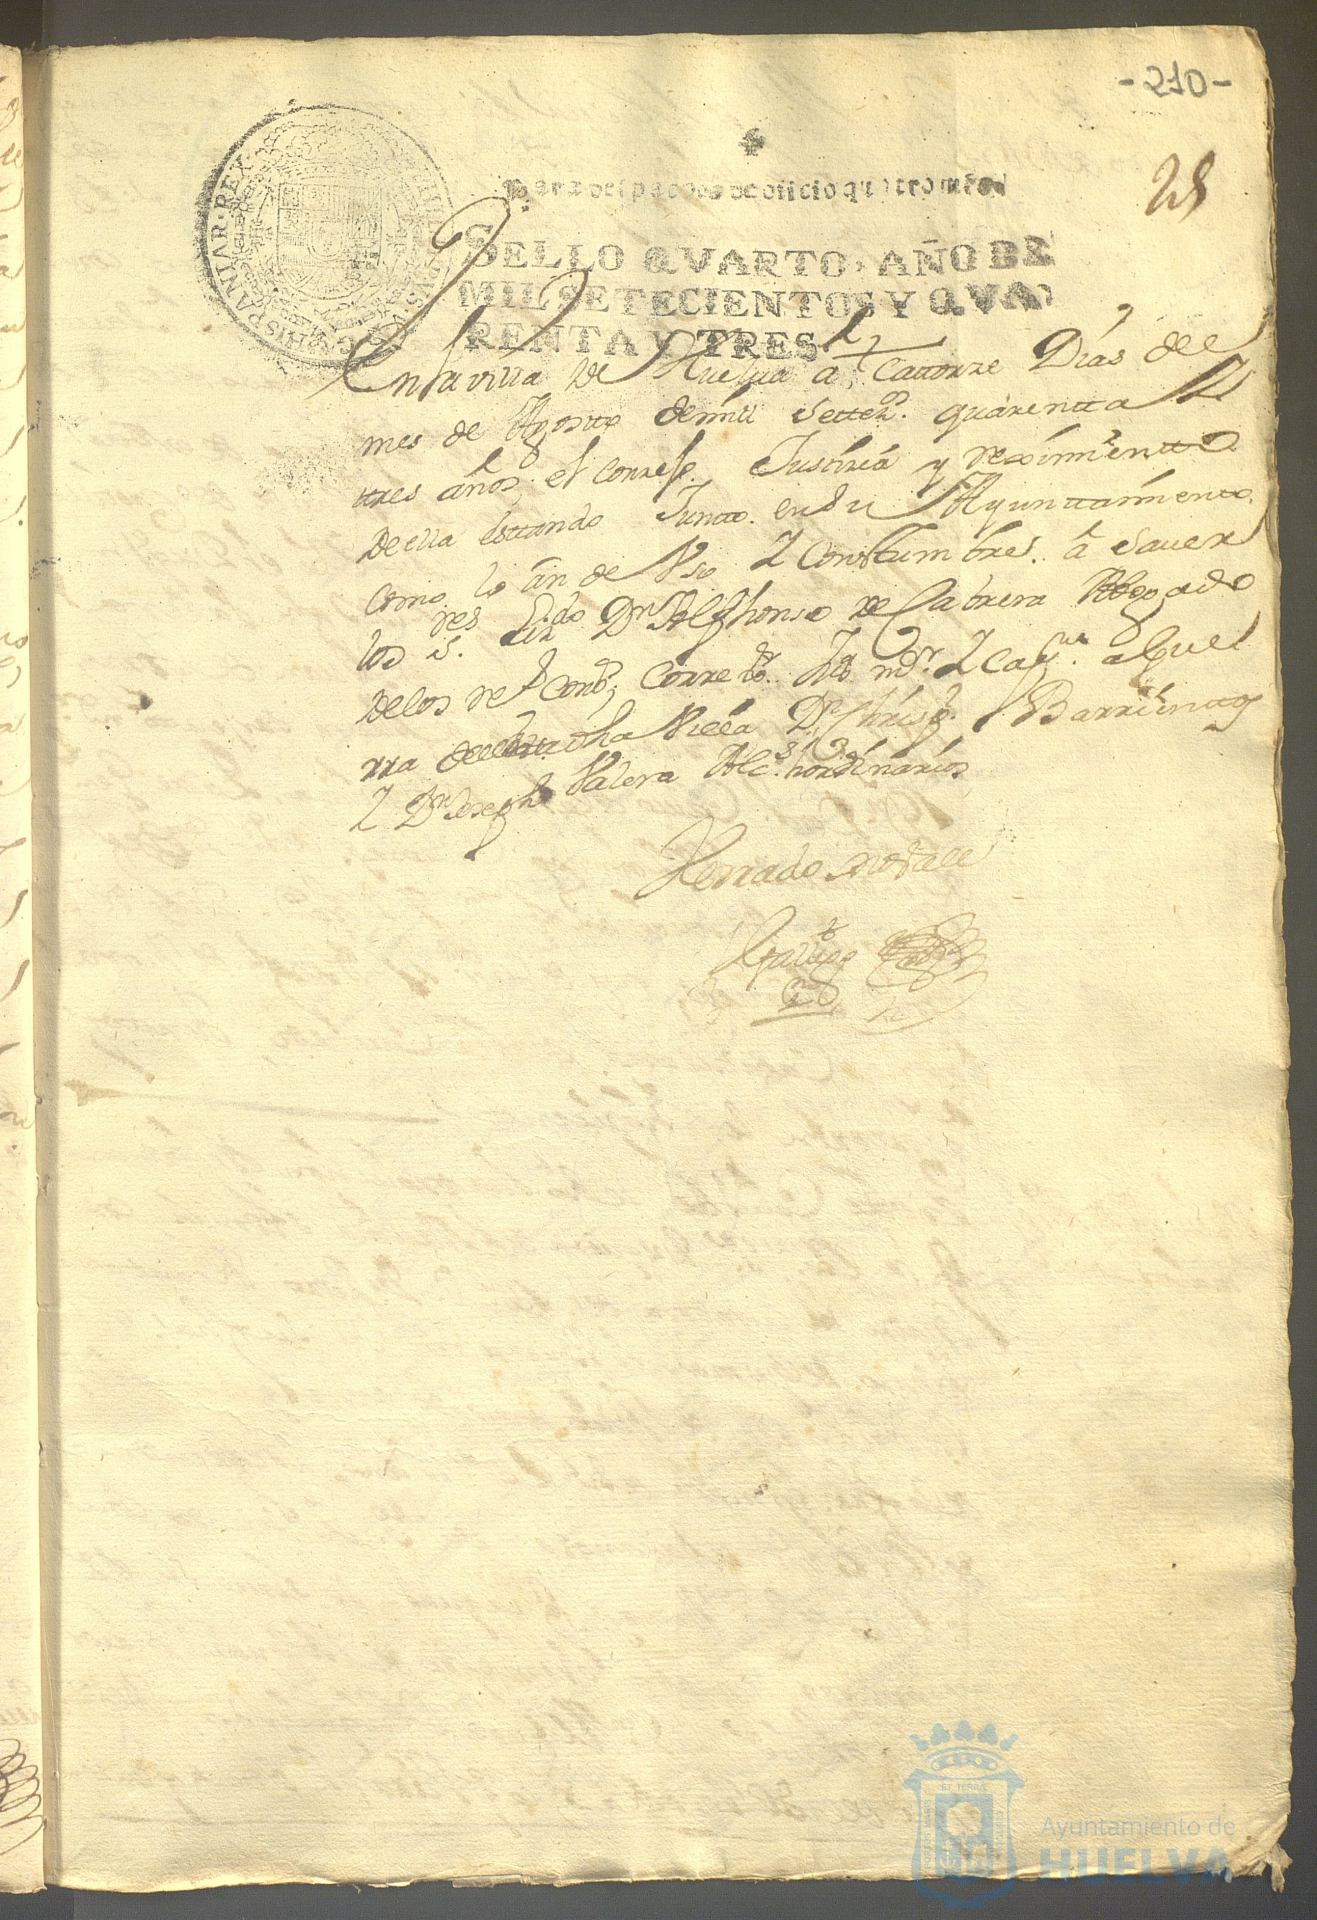 -210-
28
Para despachos de oficio quatro mrs.
SELLO QVARTO, AÑO DE
MIL SETECIENTOS Y QVA
RENTA Y TRES.
HISPANIAR·REX
En la villa de Huelva a Cattorze Dias del
mes de Agosto de mill Settez. quarenta Y
ttres años el Correg. Justicia y reximientto
de ella esttando Juntto. en su Ayunttamientto.
Como lo an de Vso Y Constumbres. â Saver
los S.res Lizdo Dn Alfhonso de Cabrera Abogado
de los Rs Cons. Corre.or Y Cap.n a Gue
rra de dha Villa Dn Chrisp.l Barrientos
Y Dn Joseph Valera Alc.s hordinarios
Herrado no Vale
Ayuntamiento de
HUELVA